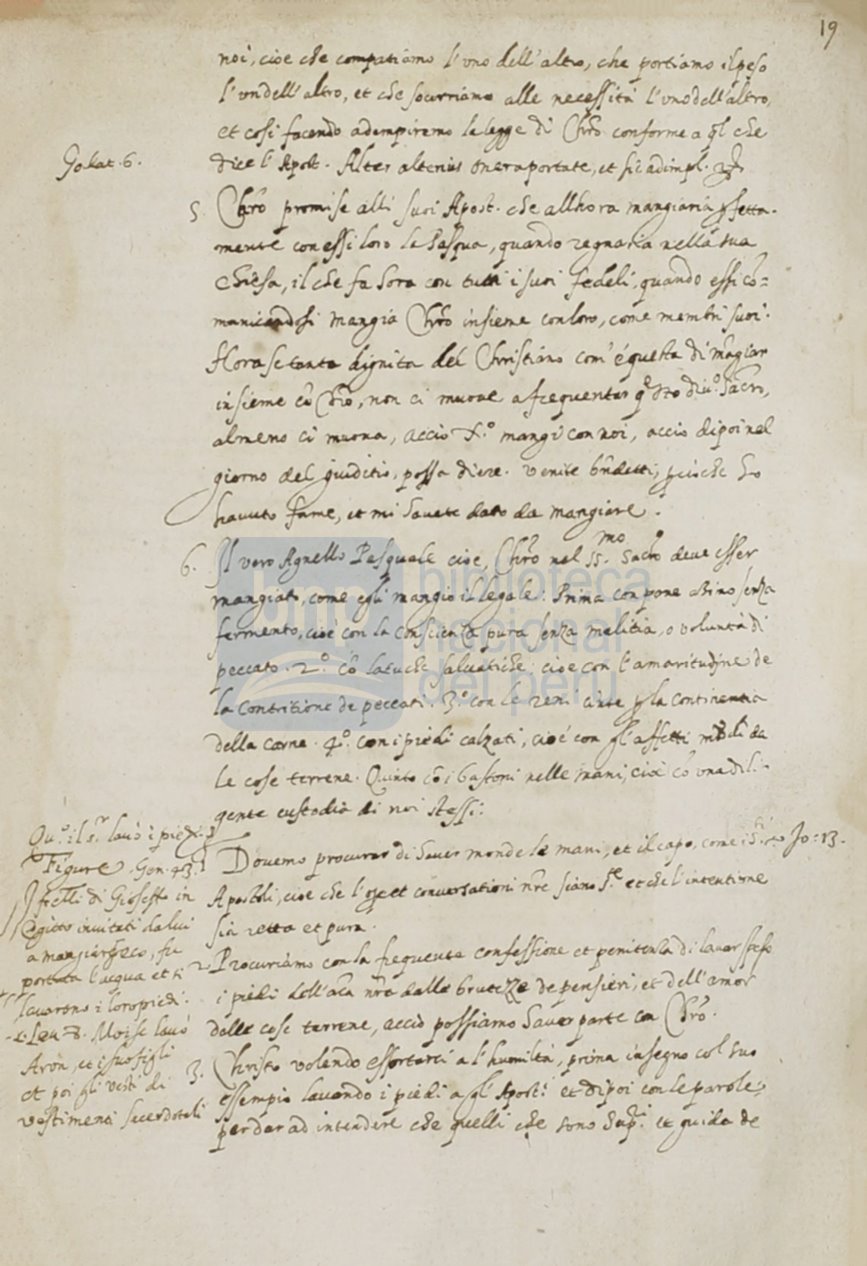 19
noi, cioe che compatiamo l'uno dell'altro, che portiamo il peso
l'un dell'altro, et che socorriamo alle necessità l'uno dell'altro,
et cosi facendo adempiremo la legge di Chro conforme a ql che
Galat. 6.
dice l'Apost. Alter alterius onera portate, et sic adimpl.
5. Chro promise alli suoi Apost. che allhora mangiaria pfetta-
mente con essi loro la Pasqua, quando regnaria nella sua
Chiesa, il che fa hora con tutti i suoi fedeli, quando essi cō=
municandosi mangia Chro insieme con loro, come membri suoi.
Hora se tanta dignita del Christiano com'é questa di māgiar
insieme cō Chro, non ci muove a frequentar qsto diuo. Sacro,
almeno ci muova, acciò X.o mangi con noi, accio dipoi nel
giorno del giuditio, possa dire. Venite bndetti, pcioche ho
havuto fame, et mi havete dato da mangiare.
6. Il vero Agnello Pasquale cioe, Chro nel SS.mo Sacro deve esser
mangiato, come egli mangio il legale: Prima con pane Azimo senza
fermento, cioe con la conscienza pura senza malitia, o voluntà di
peccato. 2.o cō latuche salvatiche: cioe con l'amaritudine de
la contritione de peccati. 3.o con le reni cinte p la continentia
della carne. 4.o con i piedi calzati, cioé con gl'affetti
le cose terrene. Quinto cō i bastoni nelle mani, cioè cō una dili-
gente custodia di noi stessi.
Qu.o il s.r lavò i piedi.
Figure, Gen. 43.
I frelli di Gioseffo in
Egitto invitati da lui
a mangiar seco, fu
portata l'acqua et si
lavorono i loro piedi.
Leu. 8. Moise lavò
Aron, et i suo figli
et poi gli vesti di
vestimenti sacerdotali
Dovemo procurar di haver monde le mani, et il capo, come i Jo: 13.
Apostoli, cioe che l'ope et conversationi nre siano et che l'intentione
sia retta et pura.
2. Procuriamo con la frequente confessione et penitenza di lavar spesso
i piedi dell'aīa nra dalle brutezze de pensieri, et dell'amor
delle cose terrene, acciò possiamo haver parte con Chro.
3. Christo volendo essortarci a l'humiltà, prima insegno col suo
essempio lavando i piedi a gl'Apost.i et dipoi con le parole,
per dar ad intendere che quelli che sono Sup.ri et guida de
biblioteca
nacional
del perú